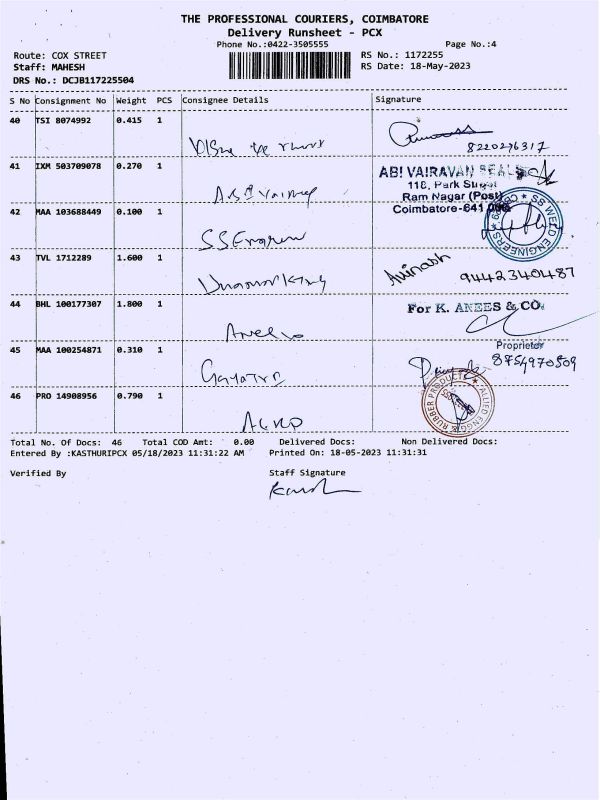 THE PROFESSIONAL COURIERS, COIMBATORE
Delivery Runsheet - PCX
Phone No.:0422-3505555 Page No.:4
Route: COX STREET RS No.: 1172255
Staff: MAHESH RS Date: 18-May-2023
DRS No.: DCJB117225504
S No Consignment No Weight PCS Consignee Details Signature
40 TSI 8074992 0.415 1
8220276317
41 IXM 503709078 0.270 1 ABI VAIRAVAN
118, Park Street
Ram Nagar (Post)
42 MAA 103688449 0.100 1 Coimbatore-641 009
SS WELD ENGINEERS
43 TVL 1712289 1.600 1 Avinash 9442340487
44 BHL 100177307 1.800 1 For K. ANEES & CO.
Anees
Proprietor
45 MAA 100254871 0.310 1 8754970509
Gayatri
46 PRO 14908956 0.790 1 ALLIED ENGG & RUBBER PRODUCTS
Total No. Of Docs: 46 Total COD Amt: 0.00 Delivered Docs: Non Delivered Docs:
Entered By :KASTHURIPCX 05/18/2023 11:31:22 AM Printed On: 18-05-2023 11:31:31
Verified By Staff Signature